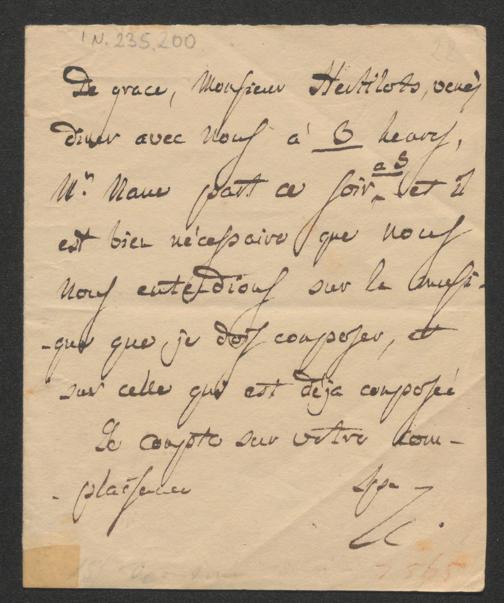 I.N. 235.200
De grace, Monsieur Hertilots, venes
diner avec nous à 3 heures,
Mr. Maue part ce soir a 8 et il
est bien nécessaire que nous
nous entendions sur la musi-
-que que je dois composer, et
sur celle qui est déja composé
Je compte sur votre com-
-plaisence Spr